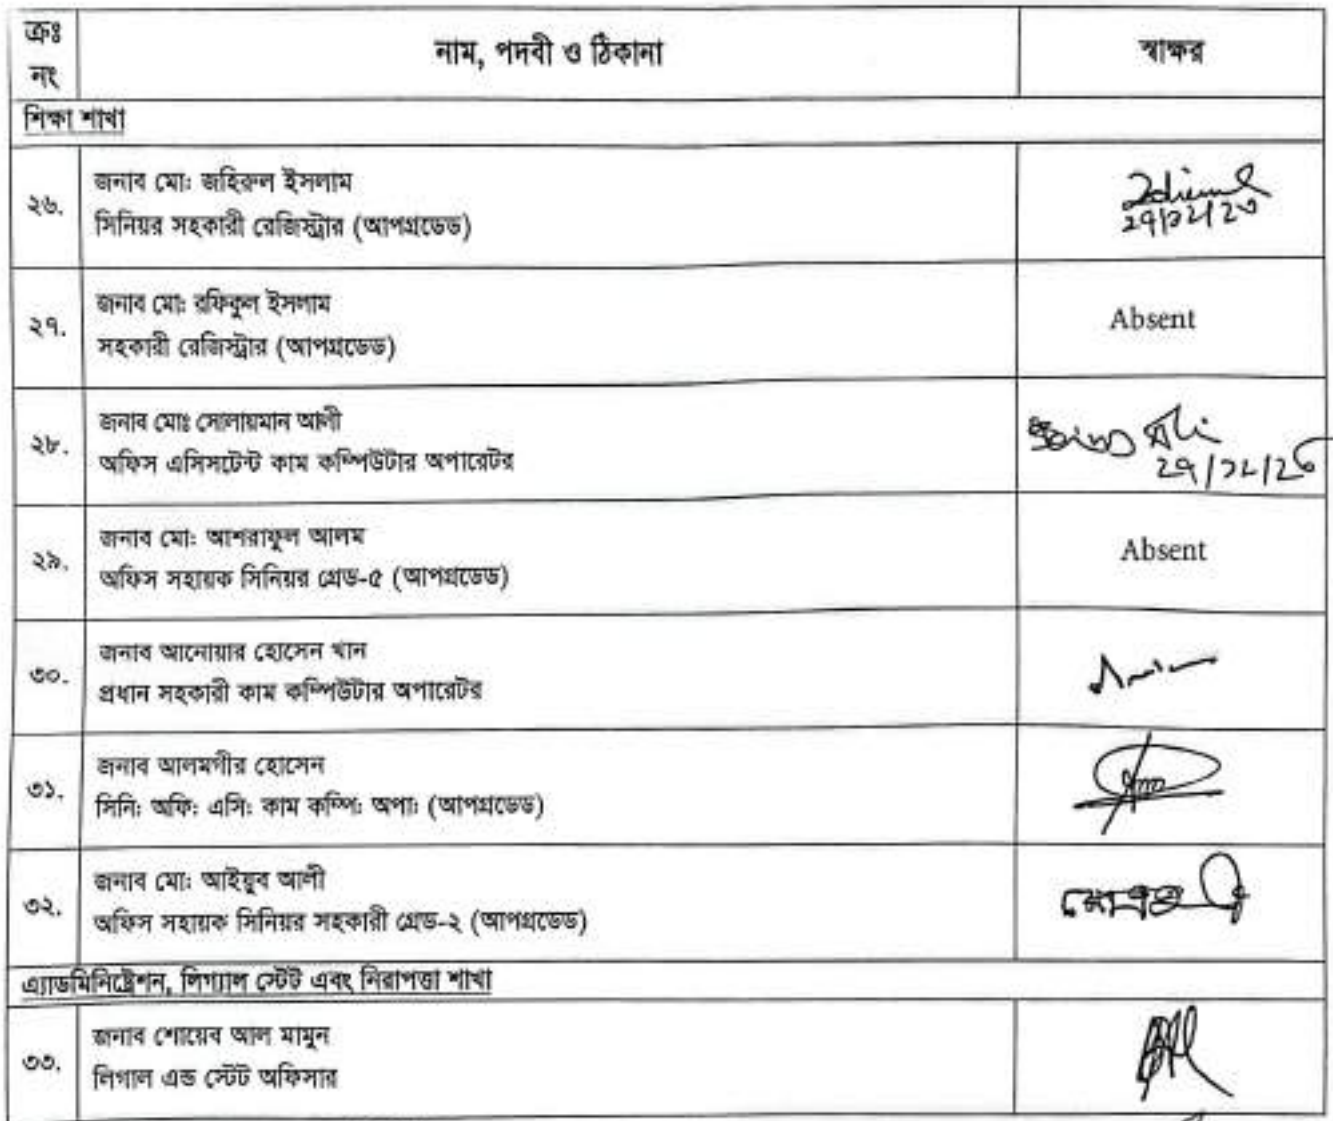 ক্রঃ নং নাম, পদবী ও ঠিকানা স্বাক্ষর
শিক্ষা শাখা
২৬. জনাব মো: জহিরুল ইসলাম
সিনিয়র সহকারী রেজিস্ট্রার (আপগ্রডেড)
২৭. জনাব মো: রফিকুল ইসলাম Absent
সহকারী রেজিস্ট্রার (আপগ্রডেড)
২৮. জনাব মোঃ সোলায়মান আলী
অফিস এসিসটেন্ট কাম কম্পিউটার অপারেটর
২৯. জনাব মো: আশরাফুল আলম Absent
অফিস সহায়ক সিনিয়র গ্রেড-৫ (আপগ্রডেড)
৩০. জনাব আনোয়ার হোসেন খান
প্রধান সহকারী কাম কম্পিউটার অপারেটর
৩১. জনাব আলমগীর হোসেন
সিনি: অফি: এসি: কাম কম্পি: অপা: (আপগ্রডেড)
৩২. জনাব মো: আইয়ুব আলী
অফিস সহায়ক সিনিয়র সহকারী গ্রেড-২ (আপগ্রডেড)
এ্যাডমিনিষ্ট্রেশন, লিগ্যাল স্টেট এবং নিরাপত্তা শাখা
৩৩. জনাব শোয়েব আল মামুন
লিগাল এন্ড স্টেট অফিসার